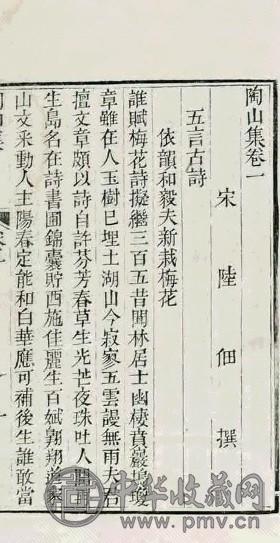 陶山集卷一
宋陸佃撰
五言古詩
依韻和毅夫新栽梅花
誰賦梅花詩擬繼三百五昔聞林居士幽棲賁巖瓊
章雖在人玉樹已埋土湖山今寂寥五雲謾無雨夫君
擅文章頗以詩自許芬芳春草生光芒夜珠吐人間
生島名在詩書圃錦囊貯西施佳麗生百媚翱翔
山文采動人主陽春定能和白華應可補後生誰敢當
中华收藏网
www.pmv.cn